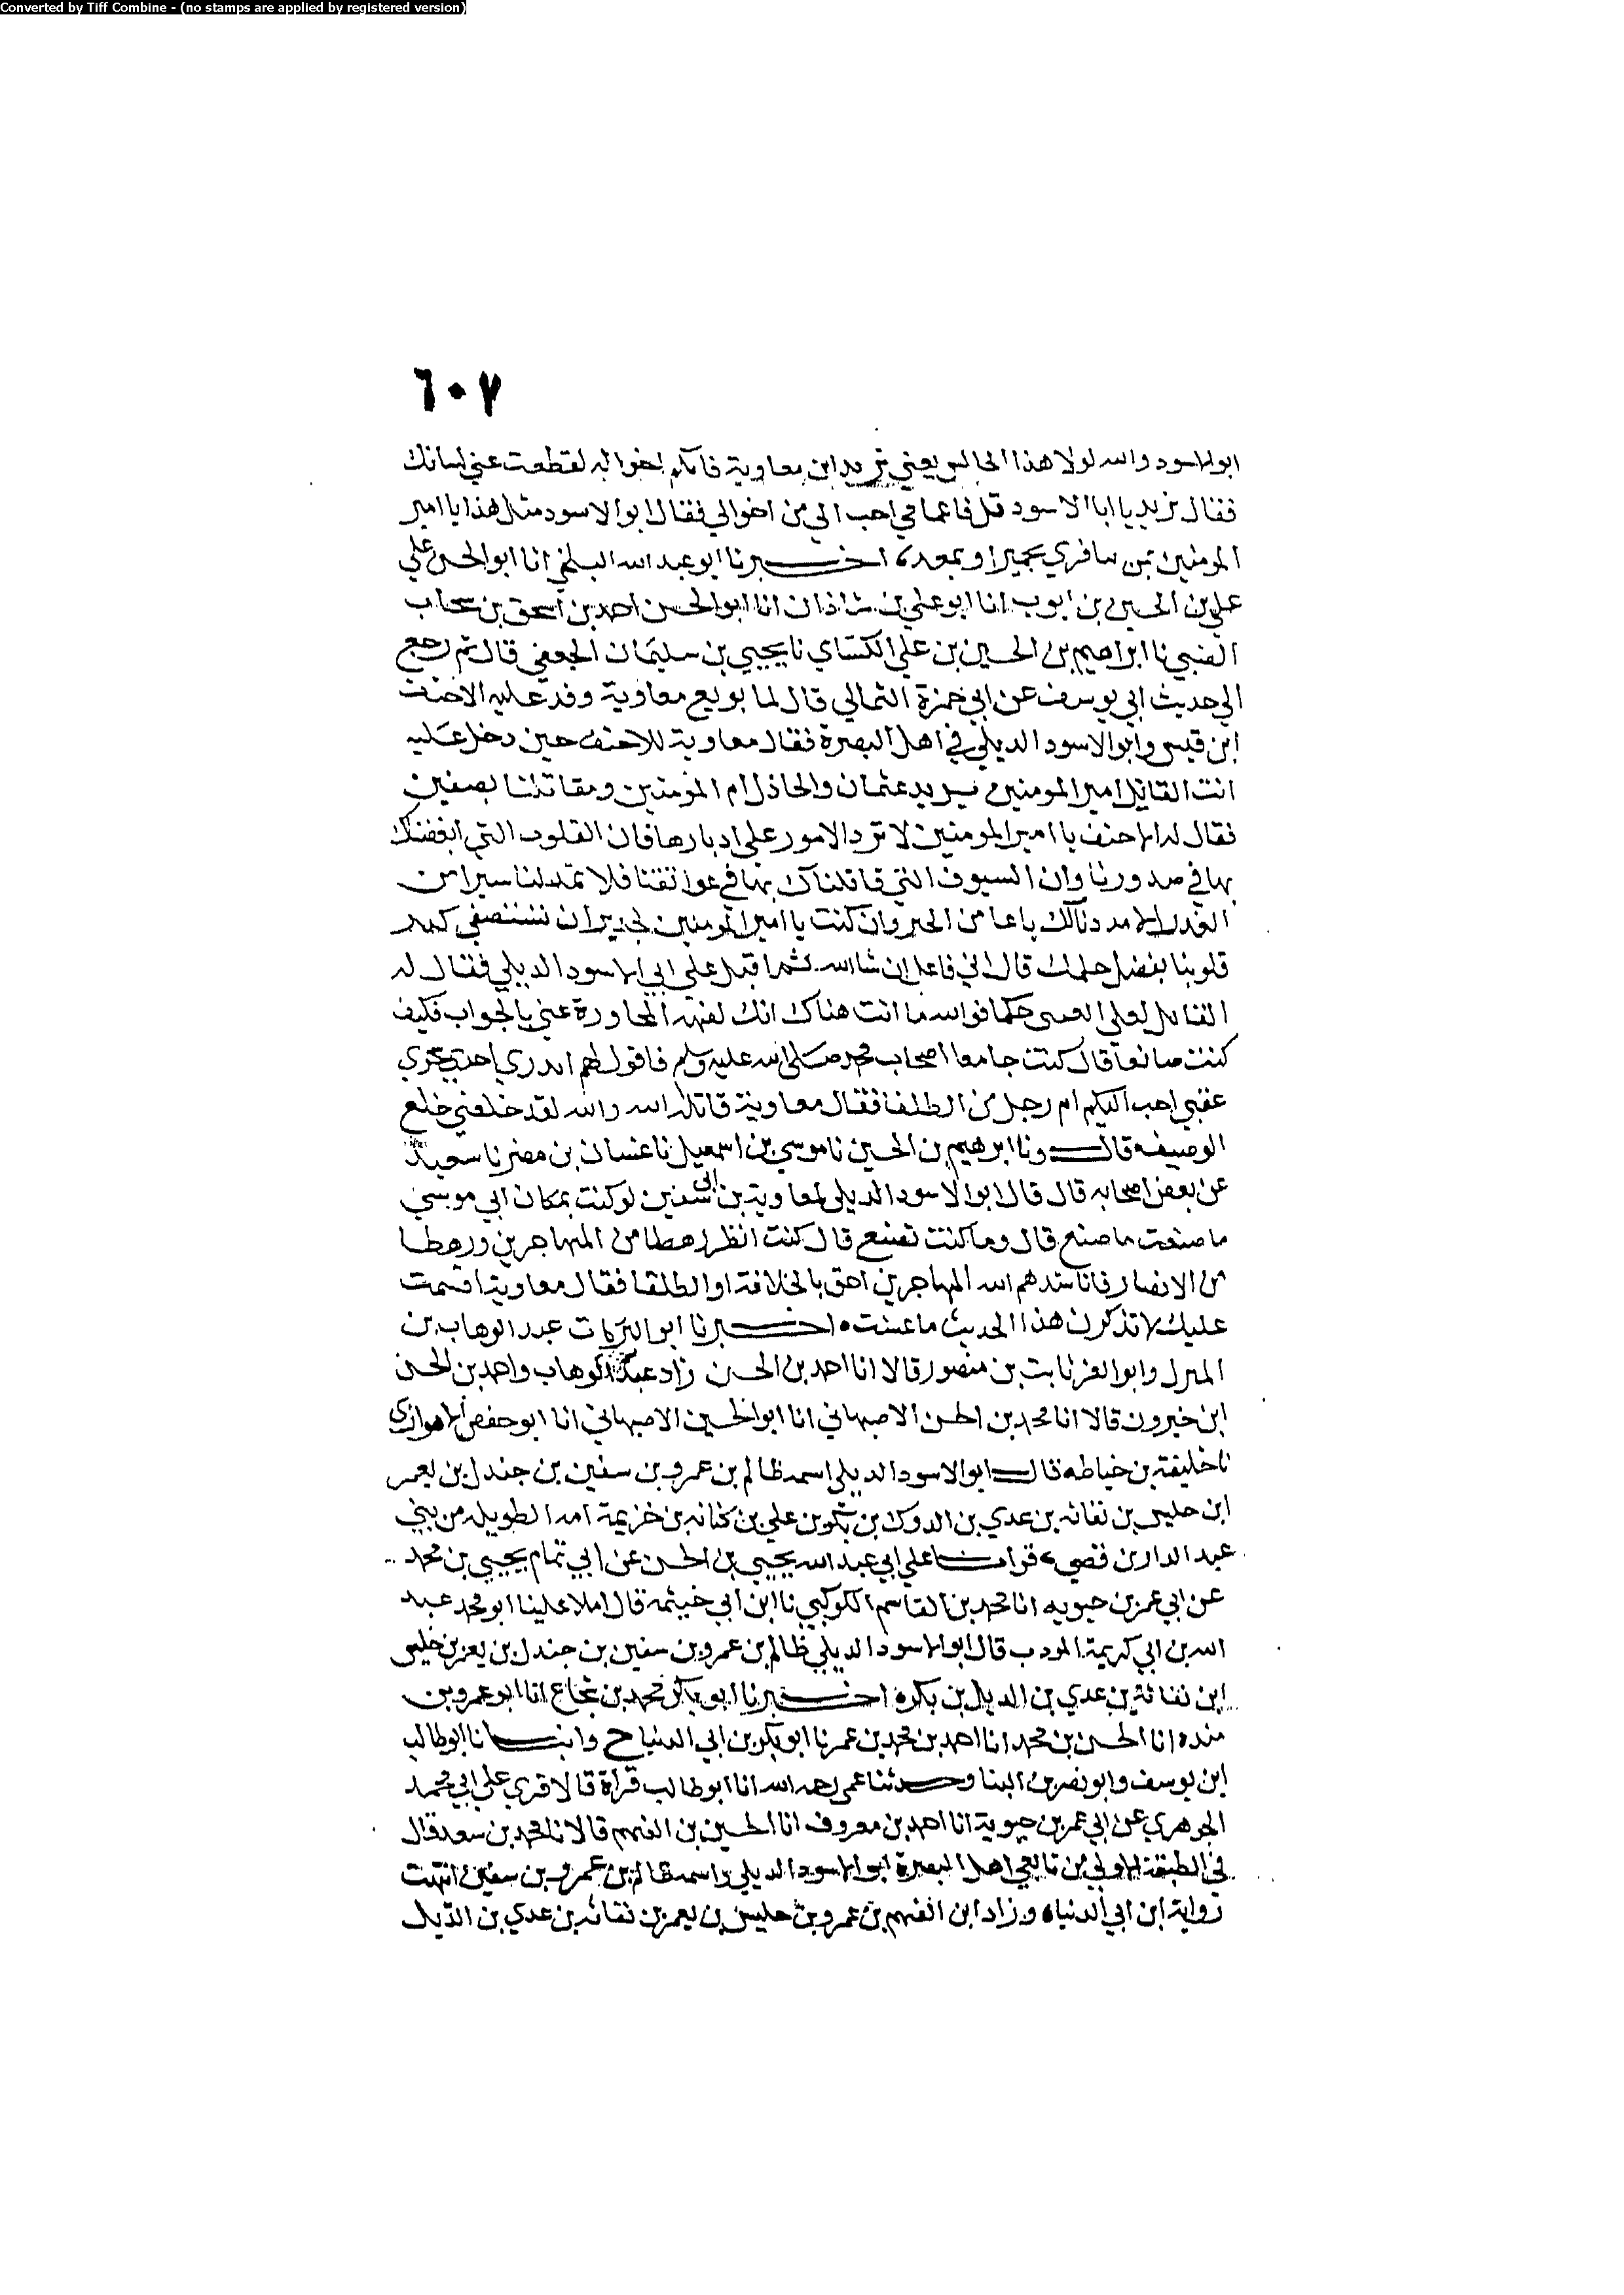 Converted by Tiff Combine - (no stamps are applied by registered version)
٦٠٧
ابو الاسود والله لولا هذا الجالس يعني يزيد ابن معاوية فانكم اخواله لقطعت عني لسانك
فقال يزيد يا ابا الاسود قل فاعمامي احب الي من اخوالي فقال ابو الاسود مثل هذا يا امير
المومنين بمن سافري بحميرا وبمعد، اخبرنا ابو عبد الله البلخي انا ابو الحسن علي
علي بن الحسين بن ايوب انا ابو علي بن شاذان انا ابو الحسن احمد بن اسحق بن سحاب
الضبي نا ابراهيم بن الحسين بن علي الكساي نا يحيي بن سليمان الجعفي قال ثم رجع
الي حديث ابي يوسف عن ابي حمزة الثمالي قال لما بويع معاوية وفد عليه الاحنف
ابن قيس وابو الاسود الديلي في اهل البصرة فقال معاوية للاحنف حين دخل عليه
انت القايل امير المومنين يريد عثمان والخاذل ام المومنين ومقاتلنا بصفين
فقال له الاحنف يا امير المومنين لا ترد الامور علي ادبارها فان القلوب التي ابغضناك
بها في صدورنا وان السيوف التي قاتلناك بها في عواتقنا فلا تمد لنا سيرا من
الغدر الا مددنا لك باعا من الخير وان كنت يا امير المومنين لجدير ان تستصفي كدر
قلوبنا بفضل حلمك قال اني فاعل ان شا الله ثم اقبل علي ابي الاسود الديلي فقال له
القايل لعلي حكما فوالله ما انت هناك انك المحاورة عني بالجواب فكيف
كنت صانعا قال كنت جامعا اصحاب محمد صلى الله عليه وسلم فاقول لهم ابدري احدي
عقبي احب اليكم ام رجل من الطلقا فقال معاوية قاتله الله والله لقد خلعني خلع
الوصيف قال ونا ابرهيم بن الحسين نا موسي بن اسمعيل نا غسان بن مضر نا سعيد
عن بعض اصحابه قال قال ابو الاسود الديلي لمعاوية بن ابي سفين لو كنت بمكان ابي موسي
ما صنعت ما صنع قال وما كنت تصنع قال كنت انظر رهطا من المهاجرين ورهطا
من الانصار فاناشدهم الله المهاجرين احق بالخلافة او الطلقا فقال معاوية اقسمت
عليك لا تذكرن هذا الحديث ما عشت اخبرنا ابو البركات عبد الوهاب بن
المبرل وابو العز ثابت بن منصور قالا انا احمد بن الحسن زاد عبد الوهاب واحمد بن الحسن
ابن خيرون قالا انا محمد بن الحسن الاصبهاني انا ابو الحسين الاصبهاني انا ابو حفص الاهوازي
نا خليفة بن خياط قال ابو الاسود الديلي اسمه ظالم بن عمرو بن سفين بن جندل بن يعمر
ابن حليس بن نفاثه بن عدي بن الدوك بن بكر بن علي بن كنانه بن خزيمة امه الطويله من بني
عبد الدار بن قصي، قرات علي ابي عبد الله يحيي بن الحسن عن ابي تمام يحيي بن محمد
عن ابي عمر بن حيويه انا محمد بن القاسم الكوكبي نا ابن ابي خيثمه قال املا علينا ابو محمد عبد
الله بن ابي كريمة المودب قال ابو الاسود الديلي ظالم بن عمرو بن سفين بن جندل بن يعمر بن حليس
ابن نفاثة بن عدي بن الديل بن بكره اخبرنا ابو بكر محمد بن شجاع انا ابو عمرو بن
منده انا الحسن بن محمد انا احمد بن محمد بن عمر نا ابو بكر بن ابي الدنيا ح وانبانا ابو طالب
ابن يوسف وابو نصر بن البنا وحدثنا عمي رحمه الله انا ابو طالب قراة قالا قري علي ابي محمد
الجوهري عن ابي عمر بن حيوية انا احمد بن معروف انا الحسين بن الفهم قالا نا محمد بن سعد قال
في الطبقة الاولي من تابعي اهل البصرة ابو الاسود الديلي واسمه ظالم بن عمرو بن سفين انتهت
رواية ابن ابي الدنيا، وزاد ابن الفهم بن عمرو بن حليس بن يعمر بن نفاثه بن عدي بن الديل